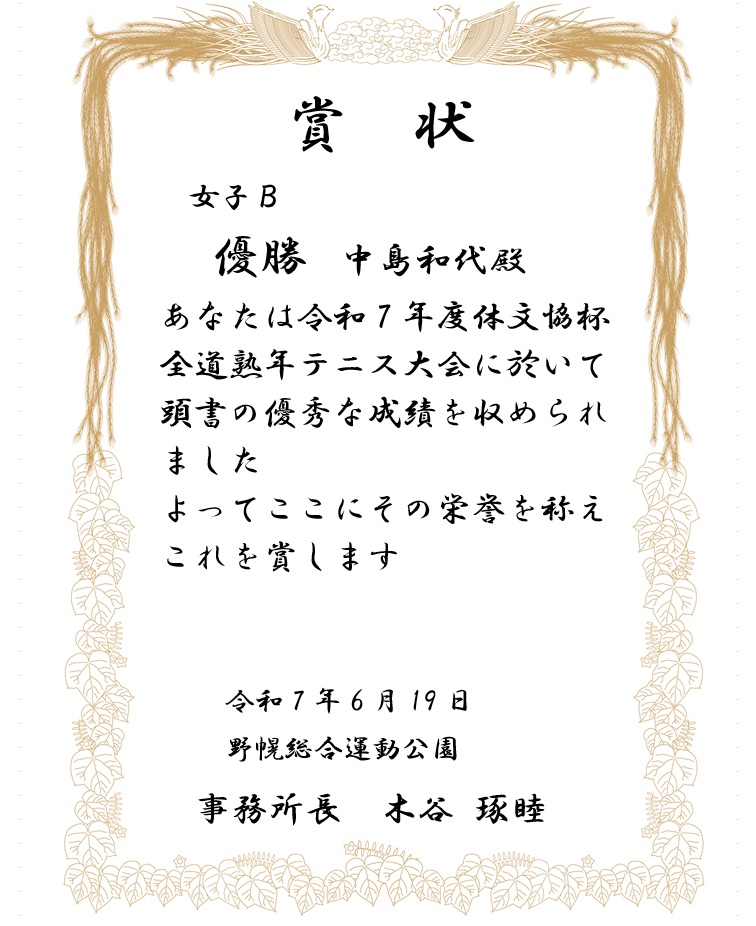 賞 状
女子B
優勝 中島和代殿
あなたは令和7年度体文協杯
全道熟年テニス大会に於いて
頭書の優秀な成績を収められ
ました
よってここにその栄誉を称え
これを賞します
令和7年6月19日
野幌総合運動公園
事務所長 木谷 琢睦